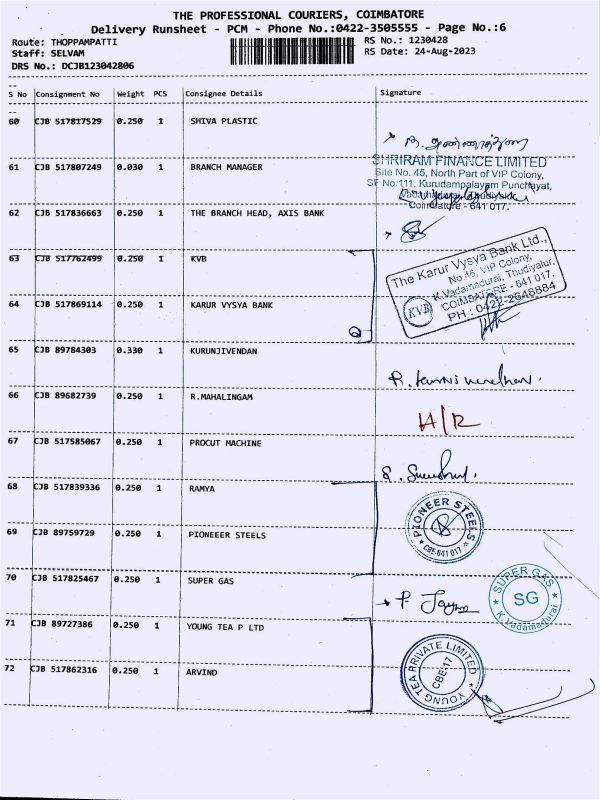 THE PROFESSIONAL COURIERS, COIMBATORE
Delivery Runsheet - PCM - Phone No.:0422-3505555 - Page No.:6
Route: THOPPAMPATTI
RS No.: 1230428
Staff: SELVAM
RS Date: 24-Aug-2023
DRS No.: DCJB123042806
S No Consignment No Weight PCS Consignee Details Signature
60 CJB 517817529 0.250 1 SHIVA PLASTIC
SHRIRAM FINANCE LIMITED
61 CJB 517807249 0.030 1 BRANCH MANAGER
Site No. 45, North Part of VIP Colony,
SF No.111, Kurudampalayam Punchayat,
Coimbatore - 641 017.
62 CJB 517836663 0.250 1 THE BRANCH HEAD, AXIS BANK
63 CJB 517762499 0.250 1 KVB
The Karur Vysya Bank Ltd.,
No.46, VIP Colony,
K.Vadamadurai, Thudiyalur,
COIMBATORE - 641 017.
PH : 0422-2648884
KVB
64 CJB 517869114 0.250 1 KARUR VYSYA BANK
65 CJB 89784303 0.330 1 KURUNJIVENDAN
66 CJB 89682739 0.250 1 R.MAHALINGAM
H/R
67 CJB 517585067 0.250 1 PROCUT MACHINE
68 CJB 517839336 0.250 1 RAMYA
PIONEER STEELS
CBE-641 017
69 CJB 89759729 0.250 1 PIONEEER STEELS
70 CJB 517825467 0.250 1 SUPER GAS
SUPER GAS
SG
K.Vadamadurai
71 CJB 89727386 0.250 1 YOUNG TEA P LTD
YOUNG TEA PRIVATE LIMITED
CBE-17
72 CJB 517862316 0.250 1 ARVIND